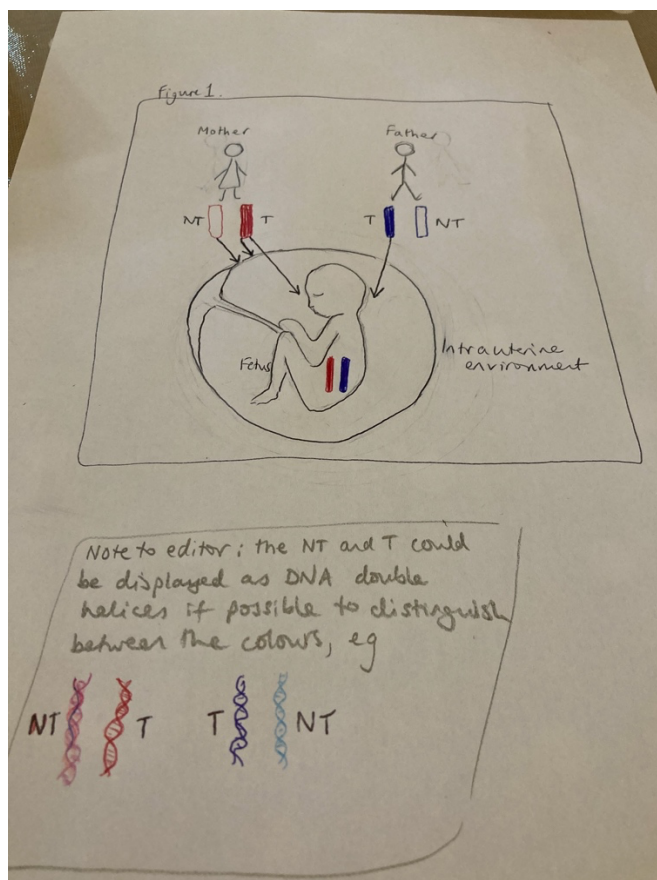 Figure 1.
Mother Father
NT T T NT
Fetus
Intrauterine
environment
Note to editor: the NT and T could
be displayed as DNA double
helices if possible to distinguish
between the colours, eg
NT T T NT